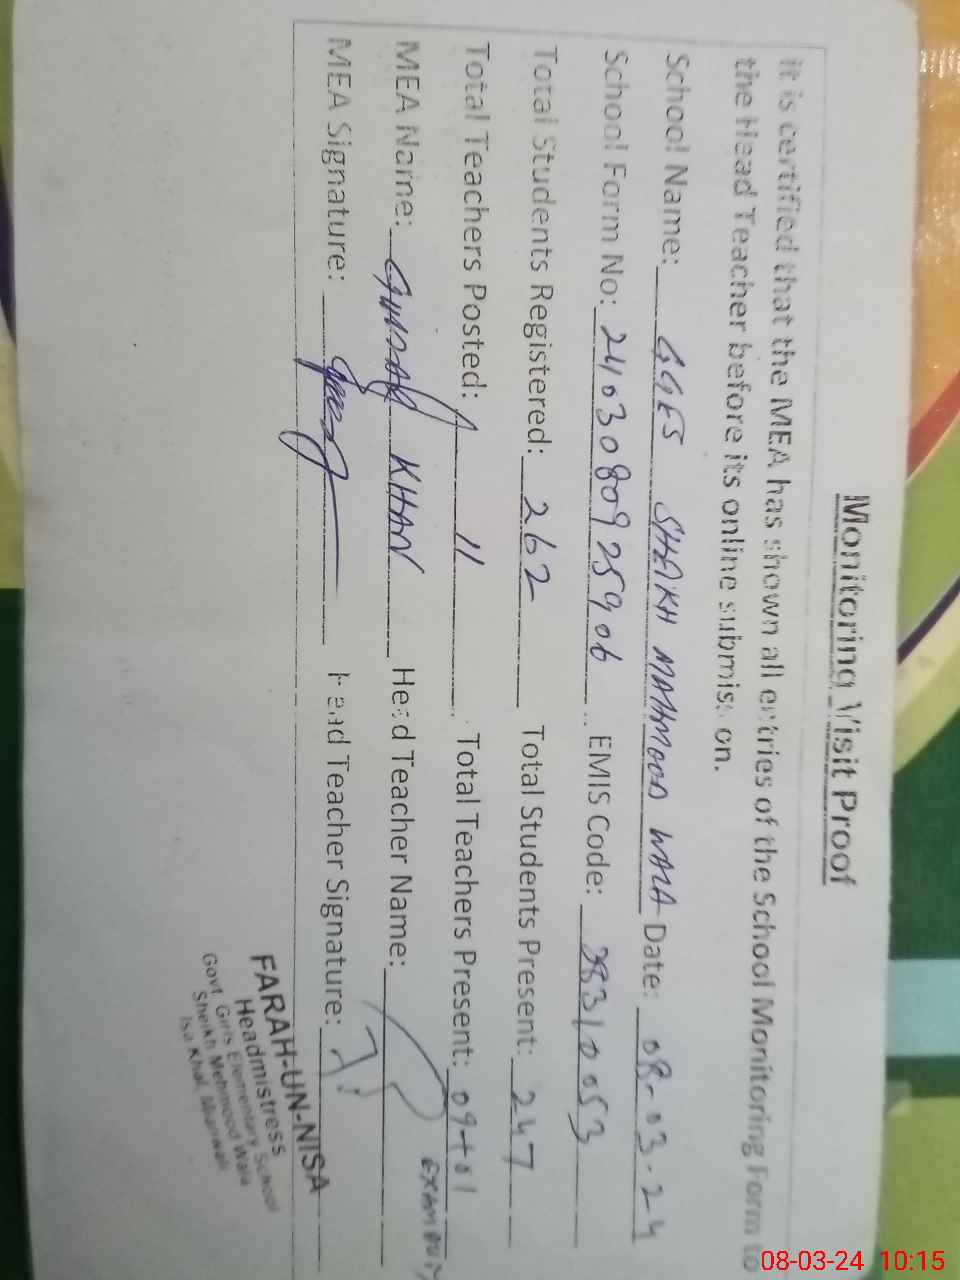 Monitoring Visit Proof
it is certified that the MEA has shown all entries of the School Monitoring Form to
the Head Teacher before its online submission.
School Name: GGES SHEIKH MAHMOOD WALA Date: 08-03-24
School Form No: 2403080925906 EMIS Code: 38310053
Total Students Registered: 262 Total Students Present: 247
Total Teachers Posted: 11 Total Teachers Present: 09+01 EXAM DUTY
MEA Name: KHAN Head Teacher Name:
MEA Signature: Head Teacher Signature:
FARAH-UN-NISA
Headmistress
Govt. Girls Elementary School
Sheikh Mehmood Wala
Isa Khel, Mianwali
08-03-24 10:15